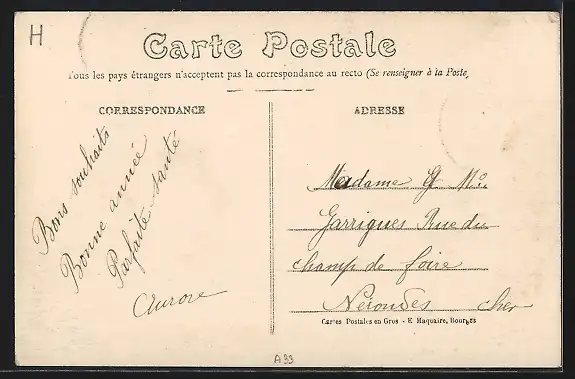 H
Carte Postale
Tous les pays étrangers n'acceptent pas la correspondance au recto (Se renseigner à la Poste)
CORRESPONDANCE
ADRESSE
Bons souhaits
Bonne année
Parfaite santé
Aurore
Madame
Garrigues Rue du
champ de foire
Nérondes Cher
Cartes Postales en Gros - E. Maquaire, Bourges
A33